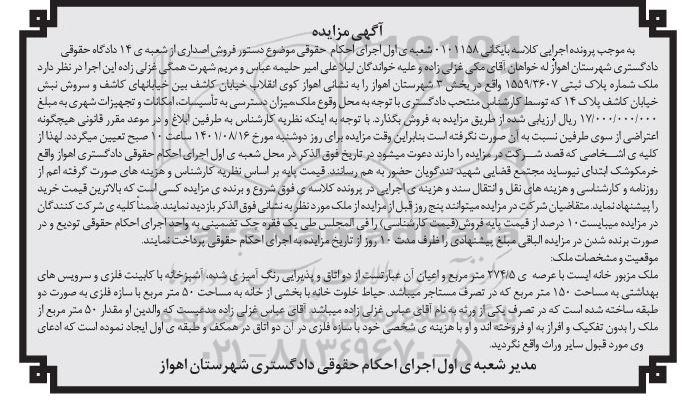 آگهی مزایده
به موجب پرونده اجرایی کلاسه بایگانی ۰۱۰۱۱۵۸ شعبه ی اول اجرای احکام حقوقی موضوع دستور فروش اصداری از شعبه ی ۱۴ دادگاه حقوقی
دادگستری شهرستان اهواز له خواهان آقای مکی غزلی زاده و علیه خواندگان لیلا علی امیر حلیمه عباس و مریم شهرت همگی غزلی زاده این اجرا در نظر دارد
ملک شماره پلاک ثبتی ۱۵۵۹/۳۶۰۷ واقع در بخش ۳ شهرستان اهواز را به نشانی اهواز کوی انقلاب خیابان کاشف بین خیابانهای کاشف و سروش نبش
خیابان کاشف پلاک ۱۴ که توسط کارشناس منتخب دادگستری با توجه به محل وقوع ملک،میزان دسترسی به تأسیسات، امکانات و تجهیزات شهری به مبلغ
۱۷/۰۰۰/۰۰۰/۰۰۰ ریال ارزیابی شده از طریق مزایده به فروش بگذارد. با توجه به اینکه نظریه کارشناس به طرفین ابلاغ و در موعد مقرر قانونی هیچگونه
اعتراضی از سوی طرفین نسبت به آن صورت نگرفته است بنابراین وقت مزایده برای روز دوشنبه مورخ ۱۴۰۱/۰۸/۱۶ ساعت ۱۰ صبح تعیین میگردد. لهذا از
کلیه ی اشـخاصی که قصد شـرکت در مزایده را دارند دعوت میشود در تاریخ فوق الذکر در محل شعبه ی اول اجرای احکام حقوقی دادگستری اهواز واقع
خرمکوشک ابتدای نیوساید مجتمع قضایی شهید تندگویان حضور به هم رسانند. قیمت پایه بر اساس نظریه کارشناس و هزینه های صورت گرفته اعم از
روزنامه و کارشناسی و هزینه های نقل و انتقال سند و هزینه ی اجرایی در پرونده کلاسه ی فوق شروع و برنده ی مزایده کسی است که بالاترین قیمت خرید
را پیشنهاد نماید. متقاضیان شرکت در مزایده میتوانند پنج روز قبل از مزایده از ملک مورد نظر به نشانی فوق الذکر بازدید نمایند. ضمنا کلیه ی شرکت کنندگان
در مزایده میبایست ۱۰ درصد از قیمت پایه فروش (قیمت کارشناسی) را فی المجلس طی یک فقره چک تضمینی به واحد اجرای احکام حقوقی تودیع و در
صورت برنده شدن در مزایده الباقی مبلغ پیشنهادی را ظرف مدت ۱۰ روز از تاریخ مزایده به اجرای احکام حقوقی پرداخت نمایند.
موقعیت و مشخصات ملک:
ملک مزبور خانه ایست با عرصه ی ۲۷۴/۵ متر مربع و اعیان آن عبارتست از دو اتاق و پذیرایی رنگ آمیز ی شده، آشپزخانه با کابینت فلزی و سرویس های
بهداشتی به مساحت ۱۵۰ متر مربع که در تصرف مستاجر میباشد. حیاط خلوت خانه با بخشی از خانه به مساحت ۵۰ متر مربع با سازه فلزی به صورت دو
طبقه ساخته شده است که در تصرف یکی از ورثه به نام آقای عباس غزلی زاده میباشد. آقای عباس غزلی زاده مدعیست که والدین او مقدار ۵۰ متر مربع از
ملک را بدون تفکیک و افراز به او فروخته اند و او با هزینه ی شخصی خود با سازه فلزی در آن دو اتاق در همکف و طبقه ی اول ایجاد نموده است که ادعای
وی مورد قبول سایر وراث واقع نگردید.
مدیر شعبه ی اول اجرای احکام حقوقی دادگستری شهرستان اهواز
۰۲۱-۸۸۳۴۹۶۷۰-۵